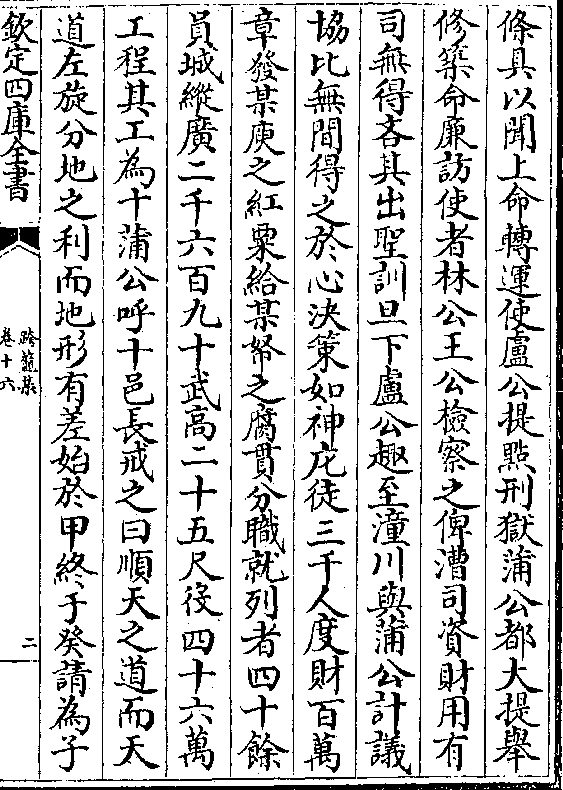 條具以聞上命轉運使盧公提點刑獄蒲公都大提舉
修築命廉訪使者林公王公檢察之俾漕司資財用有
司無得吝其出聖訓旦下盧公趣至潼川與蒲公計議
協比無間得之於心決策如神庀徒三千人度財百萬
章發某庾之紅粟給某帑之腐貫分職就列者四十餘
員城縱廣二千六百九十武高二十五尺役四十六萬
工程其工為十蒲公呼十邑長戒之曰順天之道而天
道左旋分地之利而地形有差始於甲終于癸請為子
欽定四庫全書
跨鼇集
卷十六
二